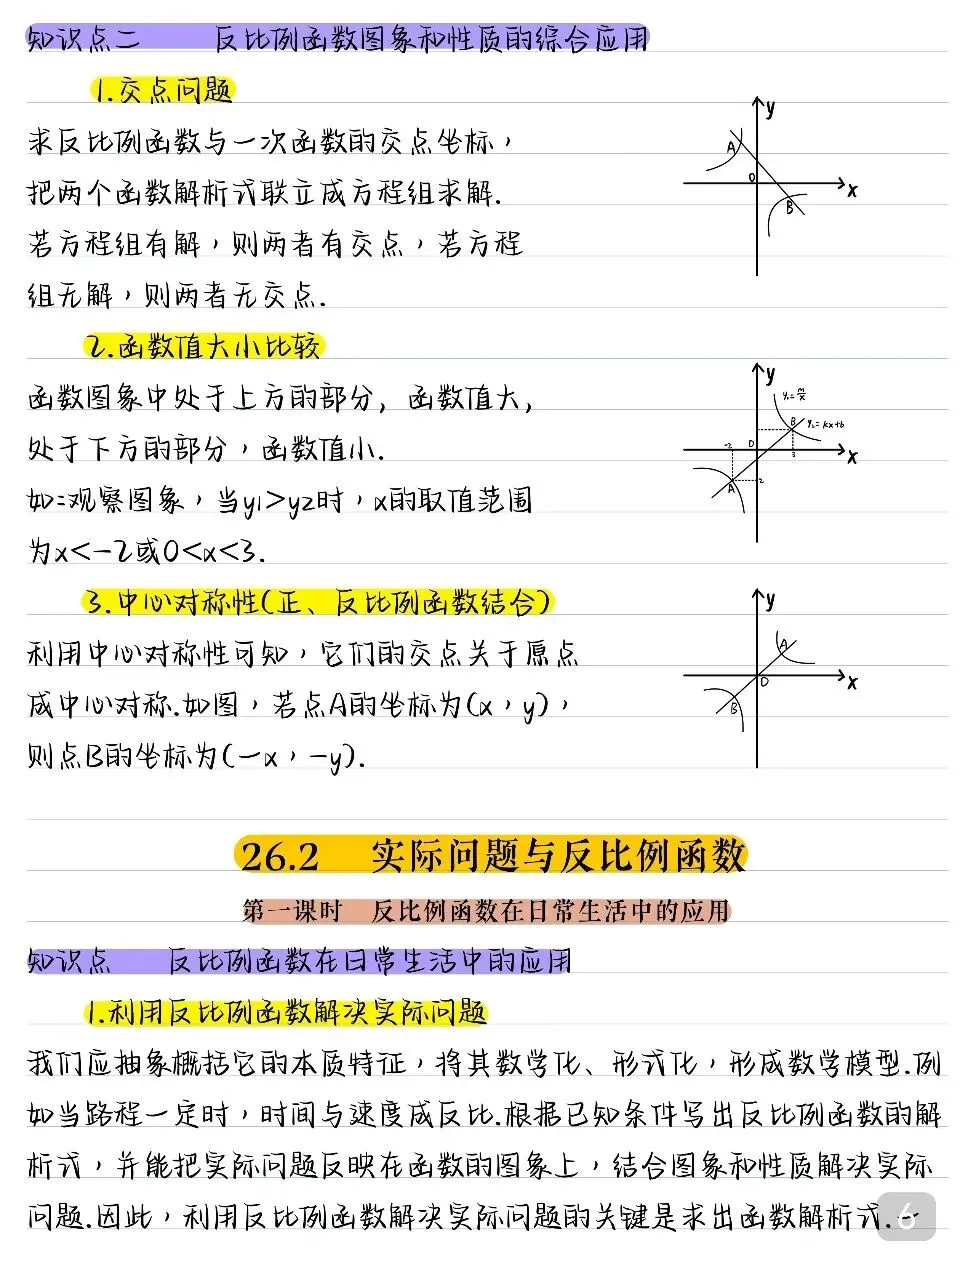 知识点二 反比例函数图象和性质的综合应用
1.交点问题
求反比例函数与一次函数的交点坐标，
把两个函数解析式联立成方程组求解.
若方程组有解，则两者有交点，若方程
组无解，则两者无交点.
y
A
O
x
B
2.函数值大小比较
函数图象中处于上方的部分，函数值大，
处于下方的部分，函数值小.
如:观察图象，当y1>y2时，x的取值范围
为x<-2或0<x<3.
y
y₁=m/x
B
y₂=kx+b
-2
O
3
x
A
-2
3.中心对称性(正、反比例函数结合)
利用中心对称性可知，它们的交点关于原点
成中心对称.如图，若点A的坐标为(x，y)，
则点B的坐标为(-x，-y).
y
A
O
x
B
26.2 实际问题与反比例函数
第一课时 反比例函数在日常生活中的应用
知识点 反比例函数在日常生活中的应用
1.利用反比例函数解决实际问题
我们应抽象概括它的本质特征，将其数学化、形式化，形成数学模型.例
如当路程一定时，时间与速度成反比.根据已知条件写出反比例函数的解
析式，并能把实际问题反映在函数的图象上，结合图象和性质解决实际
问题.因此，利用反比例函数解决实际问题的关键是求出函数解析式.
6